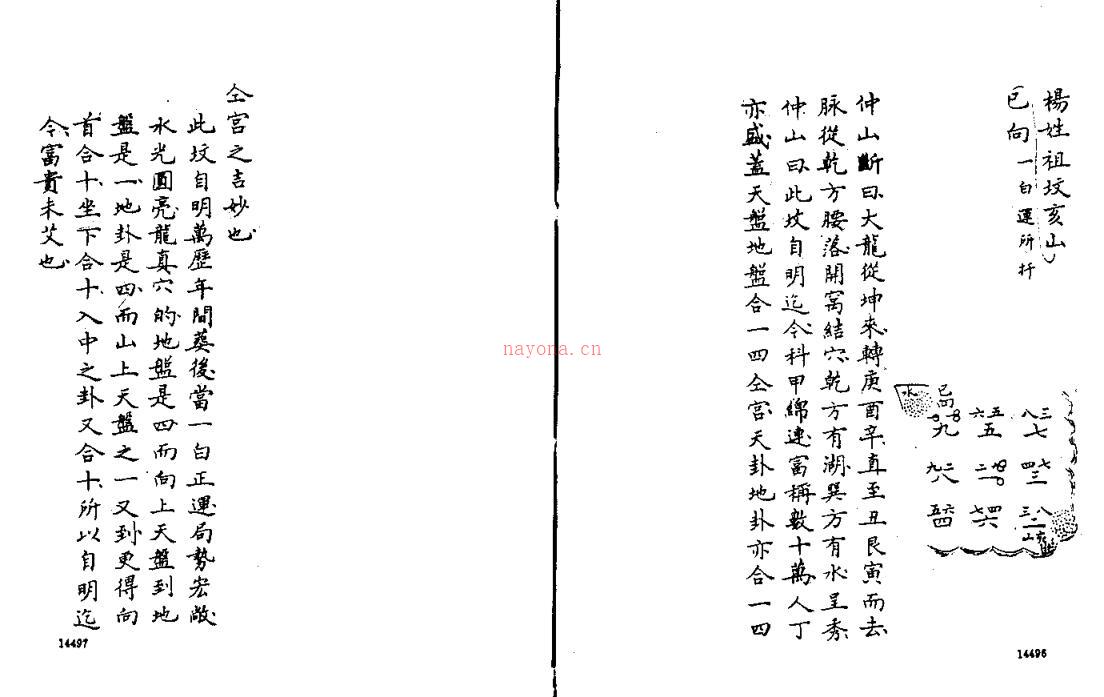 楊姓祖坟亥山
巳向一白運所扦
巳向
水
三八 七
五六 五
九
七四 三
二一
二九 八
八三 二
四七 六
六五 四
亥山
仲山斷曰大龍從坤來轉庚酉辛直至丑艮寅而去
脉從乾方腰落開窩結穴乾方有湖巽方有水呈秀
仲山曰此坟自明迄今科甲綿連富稱數十萬人丁
亦盛蓋天盤地盤合一四仝宮天卦地卦亦合一四
14496
仝宮之吉妙也
此坟自明萬歷年間葬後當一白正運局勢宏敞
水光圓亮龍真穴的地盤是四而向上天盤到地
盤是一地卦是四而山上天盤之一又到更得向
首合十坐下合十入中之卦又合十所以自明迄
今富貴未艾也
14497
nayona.cn